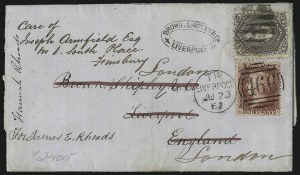 Care of
Joseph Armfield Esq
No 1. South Place
Finsbury
London
Brown, Shipley & Co
Liverpool
England
London
For James E. Rhoads
Hannah Rhoads
BROWN, SHIPLEY & Co.
LIVERPOOL
LIVERPOOL
JU 23
466